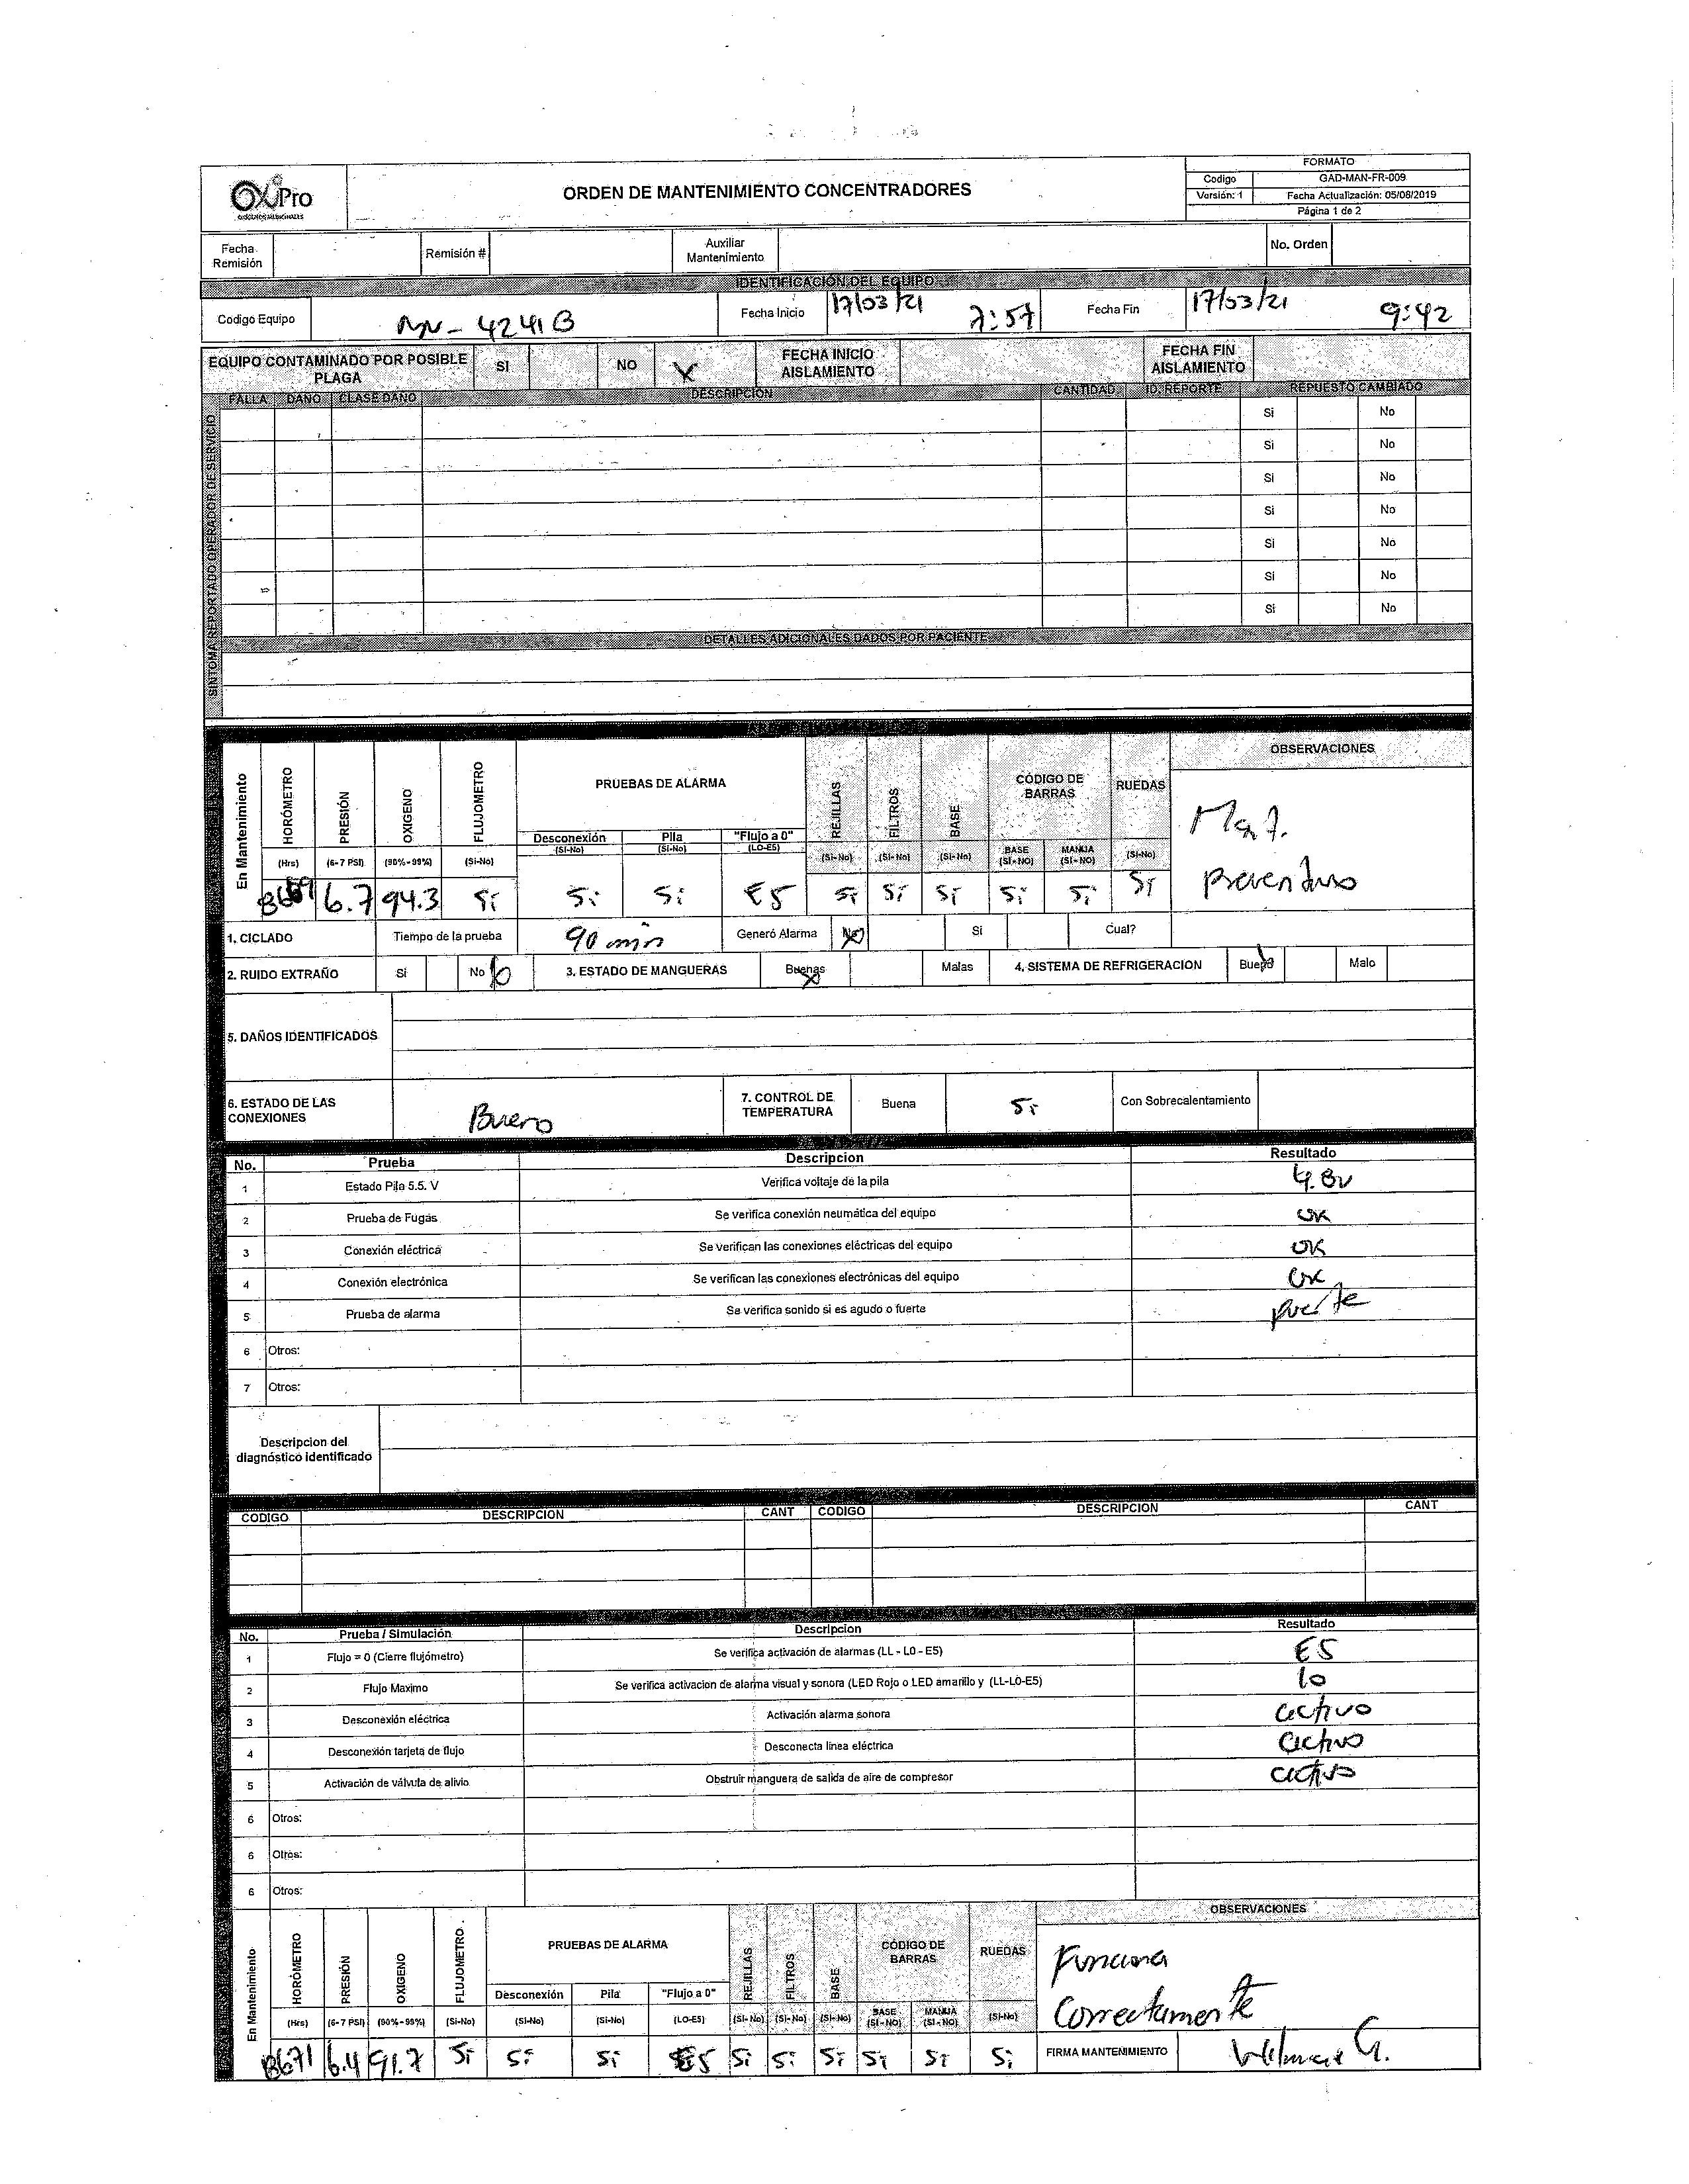 OxiPro
FORMATO
ORDEN DE MANTENIMIENTO CONCENTRADORES
Codigo GAD-MAN-FR-009
Versión: 1 Fecha Actualización: 05/08/2019
Página 1 de 2
Fecha Remisión Remisión # Auxiliar Mantenimiento No. Orden
IDENTIFICACIÓN DEL EQUIPO
Codigo Equipo Fecha Inicio 17/03/21 7:57 Fecha Fin 17/03/21 9:42
EQUIPO CONTAMINADO POR POSIBLE PLAGA SI NO X FECHA INICIO AISLAMIENTO FECHA FIN AISLAMIENTO
FALLA DAÑO CLASE DAÑO DESCRIPCION CANTIDAD ID. REPORTE REPUESTO CAMBIADO
SINTOMA REPORTADO OPERADOR DE SERVICIO
Si No
Si No
Si No
Si No
Si No
Si No
Si No
DETALLES ADICIONALES DADOS POR PACIENTE
En Mantenimiento HORÓMETRO PRESIÓN OXIGENO FLUJOMETRO PRUEBAS DE ALARMA REJILLAS FILTROS BASE CÓDIGO DE BARRAS RUEDAS OBSERVACIONES
Desconexión Pila "Flujo a 0"
(Hrs) (6-7 PSI) (90%-99%) (Si-No) (Si-No) (Si-No) (LO-E5) (Si-No) (Si-No) (Si-No) BASE (SI-NO) MANIJA (SI-NO) (Si-No)
6.7 94.3 Si Si Si E5 Si Si Si Si Si Si
1. CICLADO Tiempo de la prueba 90 min Generó Alarma No Si Cual?
2. RUIDO EXTRAÑO Si No 3. ESTADO DE MANGUERAS Buenas Malas 4. SISTEMA DE REFRIGERACION Bueno Malo
5. DAÑOS IDENTIFICADOS
6. ESTADO DE LAS CONEXIONES Bueno 7. CONTROL DE TEMPERATURA Buena Si Con Sobrecalentamiento
No. Prueba Descripcion Resultado
1 Estado Pila 5.5. V Verifica voltaje de la pila 4.8v
2 Prueba de Fugas Se verifica conexión neumática del equipo OK
3 Conexión eléctrica Se verifican las conexiones eléctricas del equipo OK
4 Conexión electrónica Se verifican las conexiones electrónicas del equipo OK
5 Prueba de alarma Se verifica sonido si es agudo o fuerte fuerte
6 Otros:
7 Otros:
Descripcion del diagnóstico identificado
CODIGO DESCRIPCION CANT CODIGO DESCRIPCION CANT
No. Prueba / Simulación Descripcion Resultado
1 Flujo = 0 (Cierre flujómetro) Se verifica activación de alarmas (LL - LO - E5) E5
2 Flujo Maximo Se verifica activacion de alarma visual y sonora (LED Rojo o LED amarillo y (LL-LO-E5) lo
3 Desconexión eléctrica Activación alarma sonora activo
4 Desconexión tarjeta de flujo Desconecta linea eléctrica activo
5 Activación de válvula de alivio Obstruir manguera de salida de aire de compresor activo
6 Otros:
6 Otros:
6 Otros:
En Mantenimiento HORÓMETRO PRESIÓN OXIGENO FLUJOMETRO. PRUEBAS DE ALARMA REJILLAS FILTROS BASE CÓDIGO DE BARRAS RUEDAS OBSERVACIONES
Desconexión Pila "Flujo a 0"
(Hrs) (6-7 PSI) (90%-99%) (Si-No) (Si-No) (Si-No) (LO-E5) (Si-No) (Si-No) (Si-No) BASE (SI-NO) MANIJA (SI-NO) (Si-No)
Funciona
Correctamente
8671 6.4 91.7 Si Si Si E5 Si Si Si Si Si Si FIRMA MANTENIMIENTO